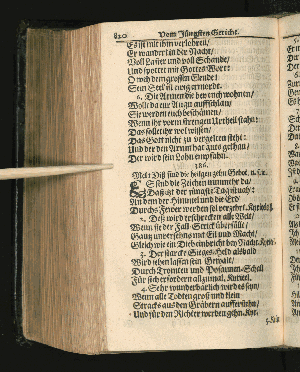 820 Vom Jüngsten Gericht.
Er ist mit ihm verlohren/
Er wandert in der Nacht/
Voll Laster und voll Schande/
Und spottet mit Gottes Wort:
O weh dem grossen Elende!
Sein Seel ist ewig ermordt.
6. Die Armen die bey euch wohnen/
Wollt da eur Augn auffschlan/
Sie werden euch beschämen/
Wenn ihr vorm strengen Urtheil stahn:
Das sollet ihr wol wissen/
Das Gott nicht zu vergelten steht:
Und der den Armn hat guts gethan/
Der wird sein Lohn empfahn.
186.
Mel: Diß sind die heilgen zehn Gebot.
ES sind die Zeichen nunmehr da/
Daß ist der jüngste Tag
An dem der Himmel und die Erd/
Durchs Feuer werden sol verzehrt.
2. Deß wird erschrecken alle Welt/
Wenn sie der Fall Strick überfällt/
Ganz unversehns mit Eil und Macht/
Gleich wie ein Dieb einbricht bey Nacht.
3. Der starcke Sieges-Held alsbald
Wird sehen lassen sein Gewalt/
Durch Trometen und Posaunen-Schall
Für sich erfordern allzumal.
4. Sehr wunderbarlich wird es seyn/
Wenn alle Todten groß und klein
Stracks aus den Gräbern aufferstehn/
Und für den Richter werden gehn.